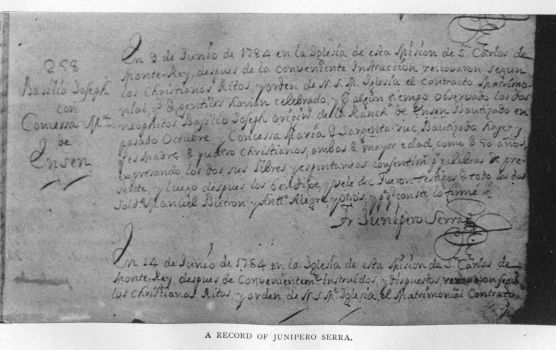 258
Basilio Joseph
con
Concessa Ma.
de
Ensen
En 3 de Junio de 1784 en la Iglesia de esta Mision de S. Carlos de
Monte-Rey, despues de la conveniente Instruccion renovaron segun
los Christianos Ritos, y orden de N. S. M. Iglesia el contracto Matrimo-
nial, q. gentiles havian celebrado, y algun tiempo observado los dos
neophitos Basilio Joseph de la Ranch. de Ensen Bautizado en
pasado Octubre, y Concessa Maria Bautizada
quatro Christianos, ambos mayor edad como 50 años,
expresando los dos sus libres, y espontaneos consentim. palabras de pre-
sente, y luego despues los bendixe, y vele &c. Fueron testigos a todo los dos
Sold. Manuel Butron y Antt. Alegre y otros, y q. conste lo firme
Fr. Junipero Serra
En 14 de Junio de 1784 en la Iglesia de esta Mision de S. Carlos de
Monte-Rey, despues de Convenientem. instruidos, y dispuestos renovaron segun
los Christianos Ritos, y orden de N. S. M. Iglesia el Matrimonial Contracto,
A RECORD OF JUNIPERO SERRA.